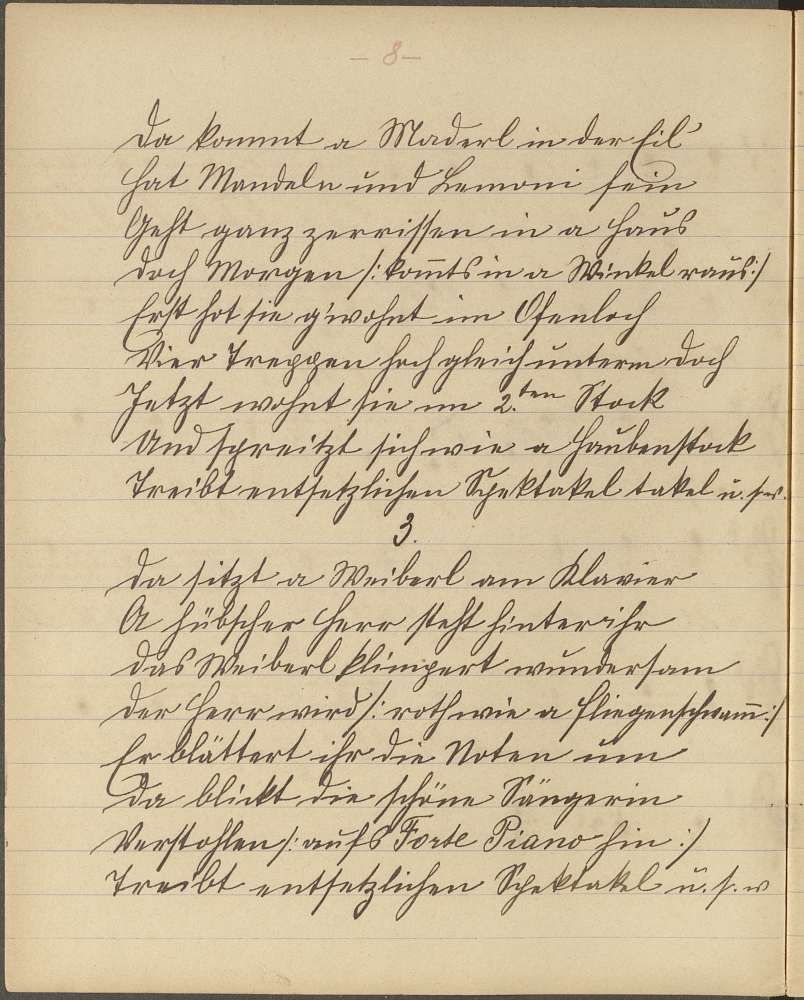 - 8 -
Da kommt a Maderl in der Eil'
Hat Mandeln und Lemoni fein
Geht ganz zerrissen in a Haus
Doch Morgen /: kom̄ts in a Winkel raus :/
Erst hot sie g'wohnt im Ofenloch
Vier Treppen hoch gleich unterm Doch
Jetzt wohnt sie im 2.ten Stock
Und spreitzt sich wie a Haubenstock
Treibt entsetzlichen Spektakel takel u. s. w.
3.
Da sitzt a Weiberl am Klavier
A hübscher Herr steht hinter ihr
Das Weiberl klimpert wundersam
Der Herr wird /: roth wie a Fliegenschwam̄ :/
Er blättert ihr die Noten um
Da blickt die schöne Sängerin
Verstohlen /: aufs Forte Piano hin :/
Treibt entsetzlichen Spektakel u. s. w